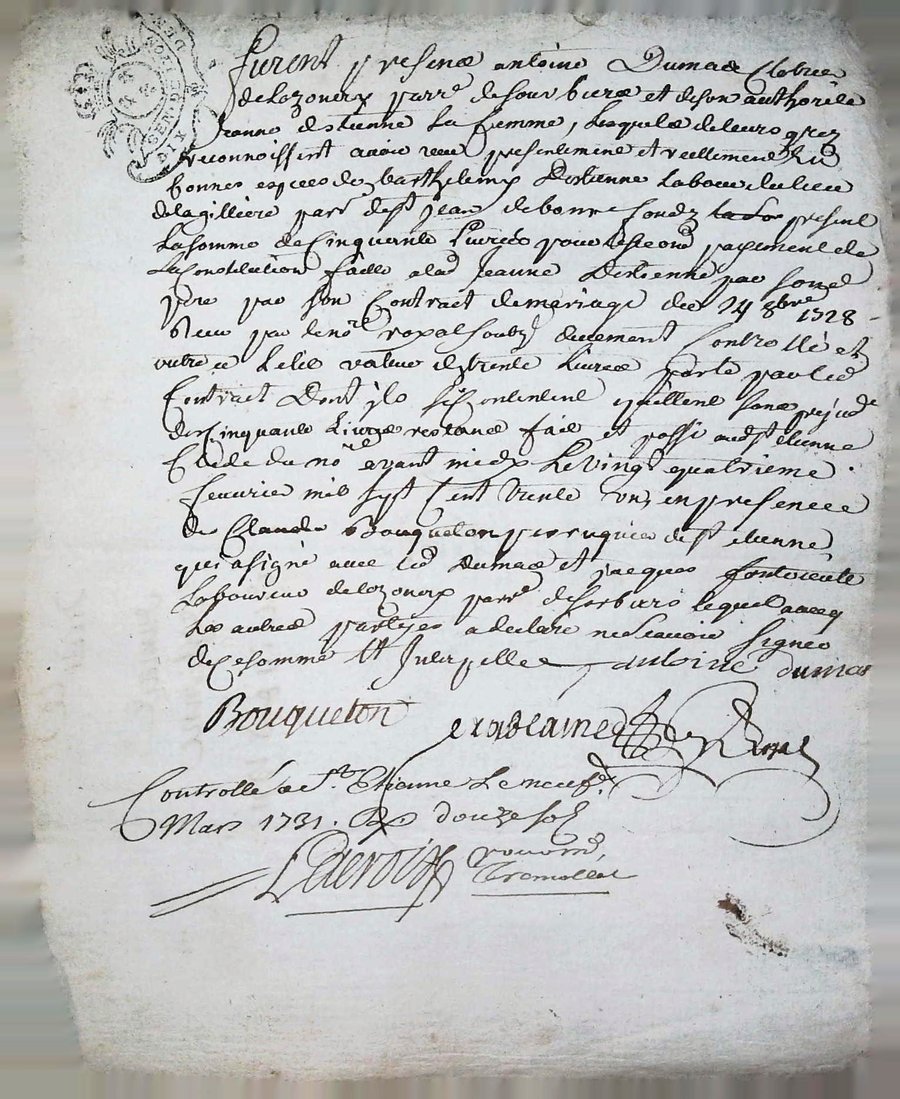 GEN. DE LION
DIX DEN
furent presens antoine Dumas clotreur
de lozoneix parr.e de sourbiere et de son authorité
Jeanne destienne sa femme, lesquels de leurs grez
reconnoissent avoir receu presentement et reellement en
bonnes especes de barthelemy Destienne laboureur du lieu
de la gilliere parr.e de S.t jean de bonnefondz present
la somme de Cinquante livres pour le second payement de
la constitution faitte a lad. Jeanne Destienne par son d.
pere par son Contrait de mariage du 24 8bre 1728
receu par le no.re royal soubz.e duement Controllé et
outre ce le lit valeur de trente livres porté par led.
Contrait Dont ils se Contentent quittent sans prejud.e
de Cinquante livres restans fait et passé aud. S.t etienne
Etude du no.re avant midy le vingt quatrieme
feuvrier mil sept Cent trente un, en presence
de Claude Bouqueton perruquier de S.t etienne
qui a signé avec led. Dumas et jacques fontvieille
laboureur de lozoneix parr.e de sorbiers lequel avecq
les autres partyes a declaré ne scavoir signer
de ce sommé et Interpellé antoine dumas
Bouqueton
Royal
Controllé a S.t Etienne le neuf.e
Mars 1731. R douze sols
Delacroix pour m.r
Tremollet